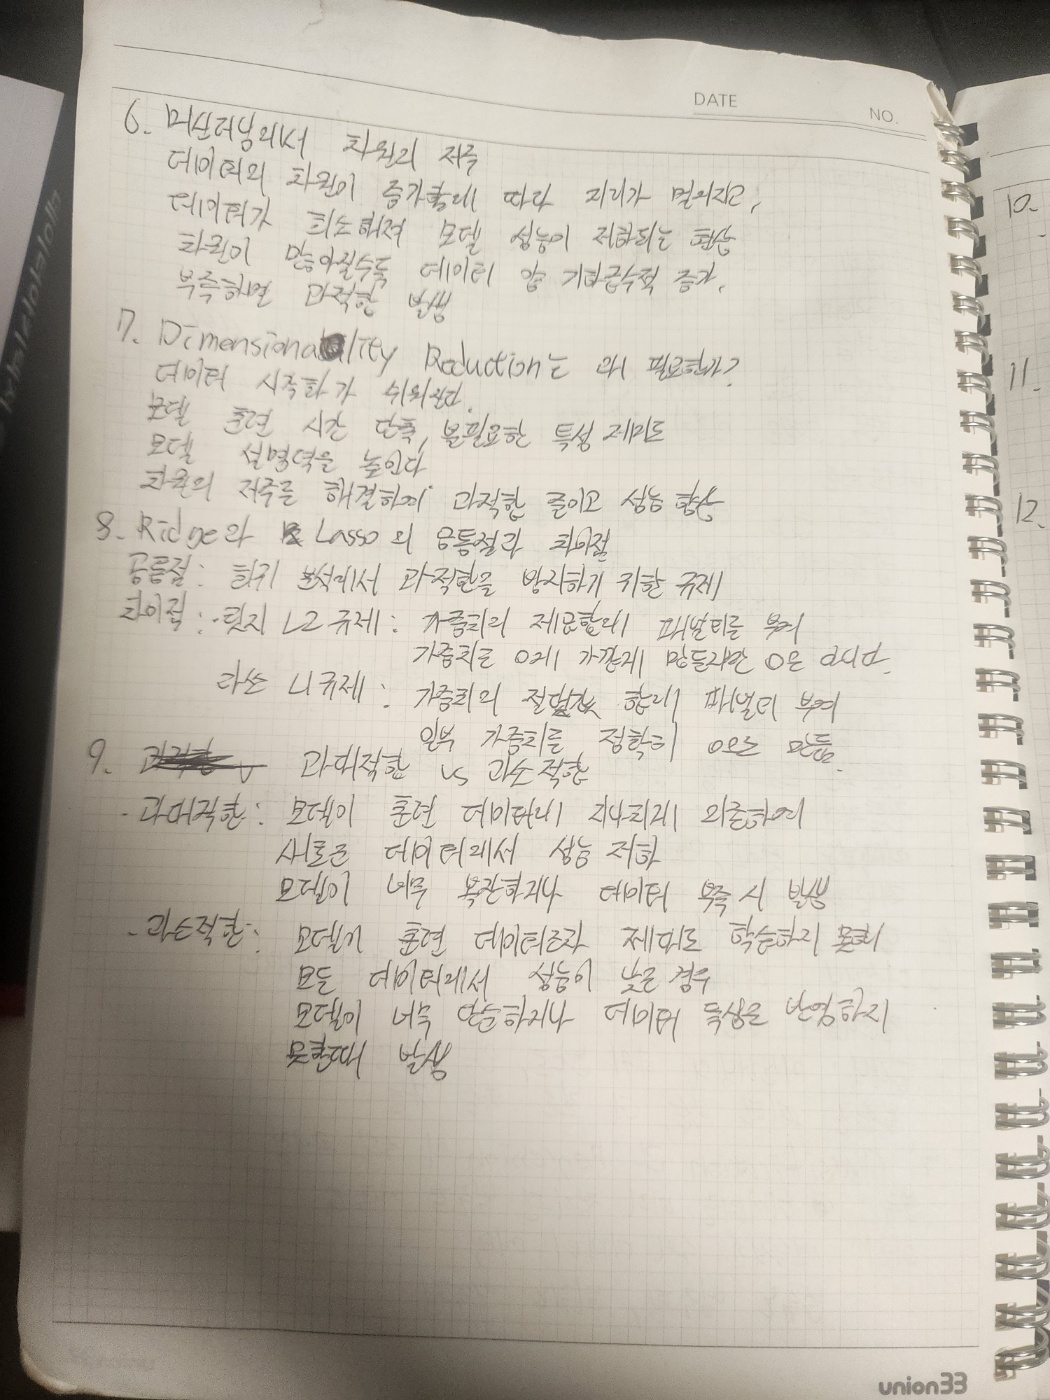 DATE
NO.
6. 머신러닝의서 차원의 저주
데이터의 차원이 증가함에 따라 거리가 멀어지고,
데이터가 희소해져 모델 성능이 저하되는 현상
차원이 많아질수록 데이터 양 기하급수적 증가,
부족하면 과적합 발생
7. Dimensionality Reduction는 왜 필요한가?
데이터 시각화가 쉬워진다.
모델 훈련 시간 단축, 불필요한 특성 제거로
모델 설명력을 높인다
차원의 저주를 해결하여 과적합 줄이고 성능 향상
8. Ridge와 Lasso의 공통점과 차이점
공통점: 회귀 분석에서 과적합을 방지하기 위한 규제
차이점: · 릿지 L2 규제: 가중치의 제곱합에 패널티를 부여
가중치를 0에 가깝게 만들지만 0은 아니다.
라쏘 L1 규제: 가중치의 절댓값 합에 패널티 부여
일부 가중치를 정확히 0으로 만듦.
9. 과대적합 vs 과소적합
- 과대적합: 모델이 훈련 데이터에 지나치게 의존하여
새로운 데이터에서 성능 저하
모델이 너무 복잡하거나 데이터 부족 시 발생
- 과소적합: 모델이 훈련 데이터조차 제대로 학습하지 못해
모든 데이터에서 성능이 낮은 경우
모델이 너무 단순하거나 데이터 특성을 반영하지
못할때 발생
10.
11.
12.
union33